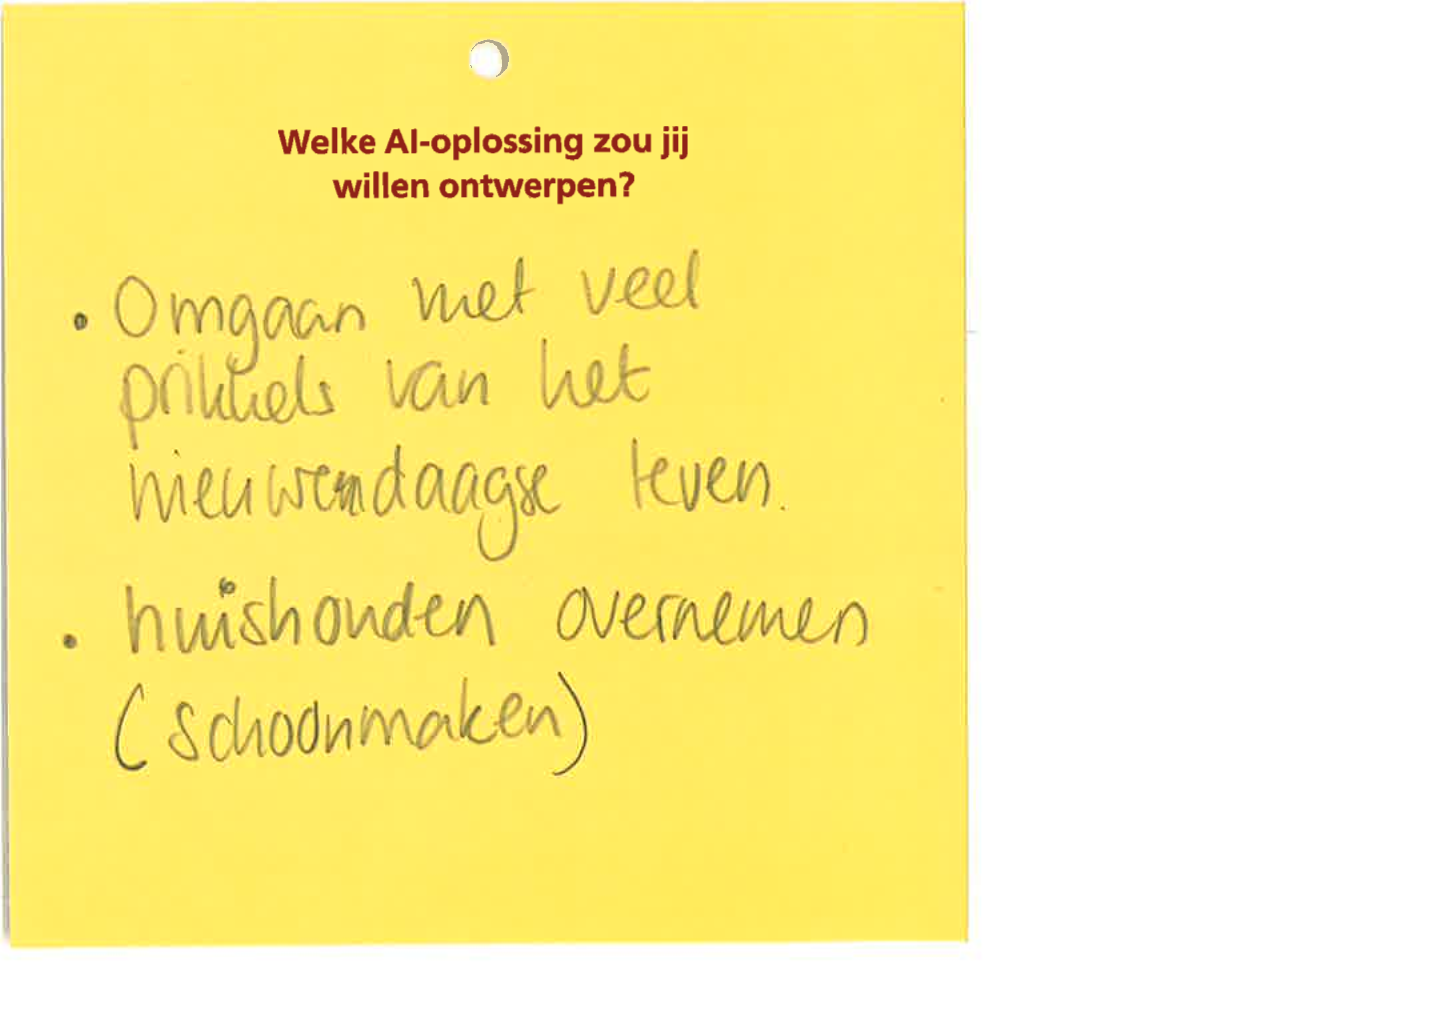 Welke AI-oplossing zou jij
willen ontwerpen?
• Omgaan met veel
prikkels van het
nieuwendaagse leven.
• huishouden overnemen
(schoonmaken)